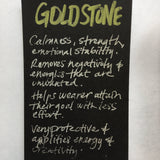 GOLDSTONE
Calmness, strength,
emotional stability.
Removes negativity &
energies that are
unwanted.
Helps wearer attain
their goal with less
effort.
Very protective &
amplifies energy &
creativity.